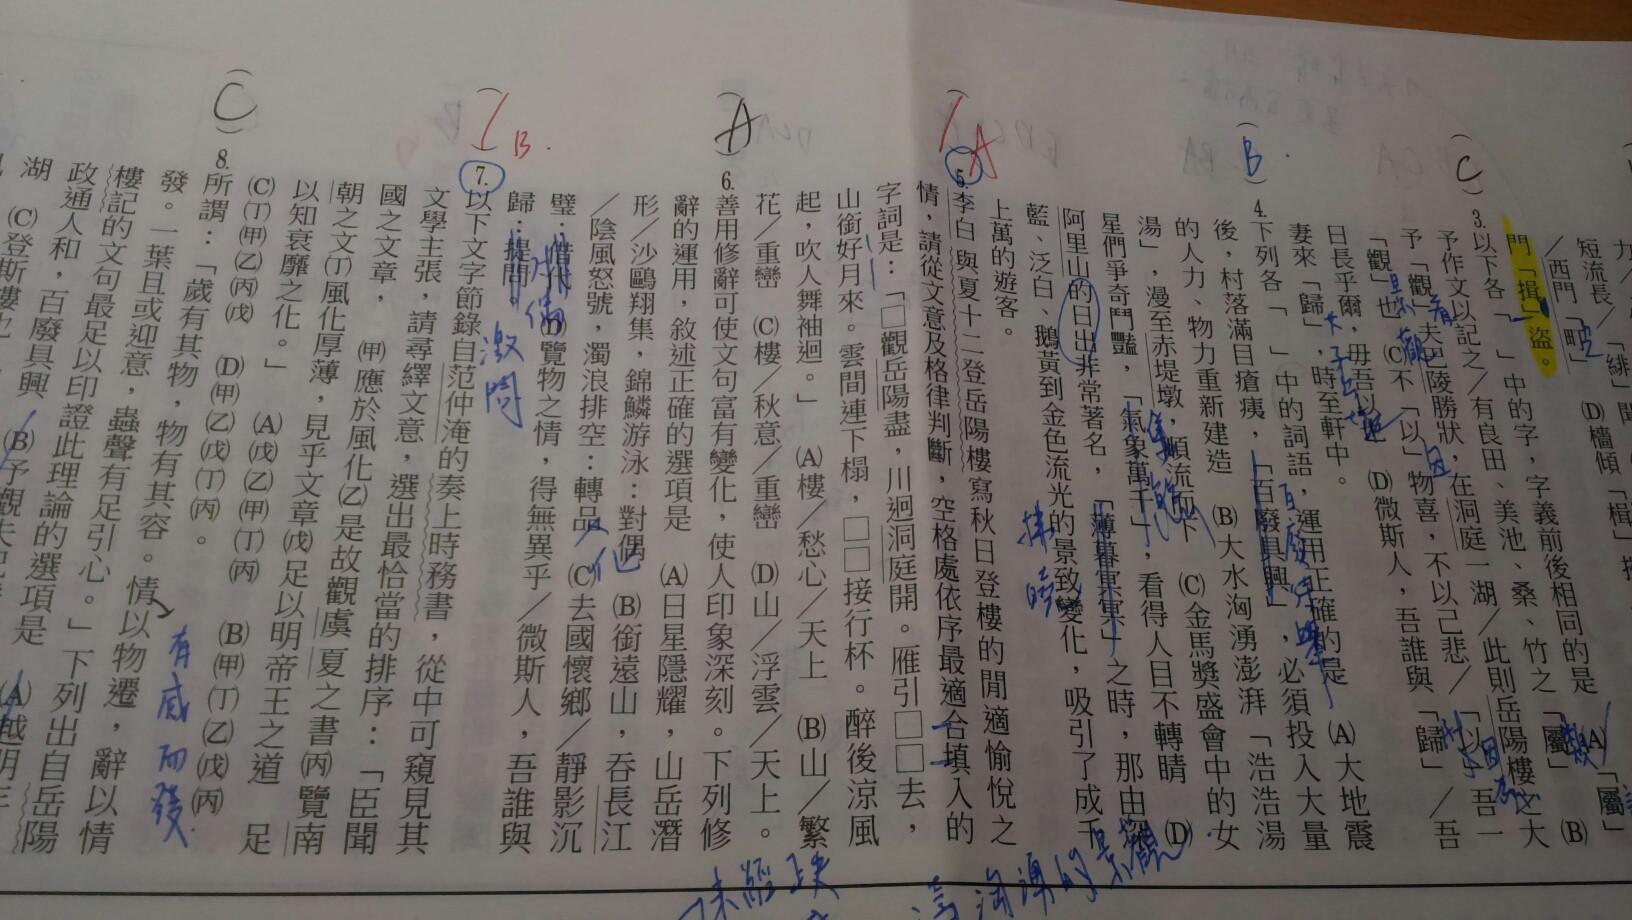 短流長／「緋」聞
(D)檣傾「楫」
／西門「町」
門「揖」盜。
(C)
3.以下各「　」中的字，字義前後相同的是　(A)「屬」
予作文以記之／有良田、美池、桑、竹之「屬」　(B)
予「觀」夫巴陵勝狀，在洞庭一湖／此則岳陽樓之大
「觀」也　(C)不「以」物喜，不以己悲／「以」吾一
日長乎爾，毋吾以也　(D)微斯人，吾誰與「歸」／吾
妻來「歸」，時至軒中。
(B)
4.下列各「　」中的詞語，運用正確的是　(A)大地震
後，村落滿目瘡痍，「百廢具興」，必須投入大量
的人力、物力重新建造　(B)大水洶湧澎湃「浩浩湯
湯」，漫至赤堤墩，順流而下　(C)金馬獎盛會中的女
星們爭奇鬥豔，「氣象萬千」，看得人目不轉睛　(D)
阿里山的日出非常著名，「薄暮冥冥」之時，那由深
藍、泛白、鵝黃到金色流光的景致變化，吸引了成千
上萬的遊客。
A
5.李白與夏十二登岳陽樓寫秋日登樓的閒適愉悅之
情，請從文意及格律判斷，空格處依序最適合填入的
字詞是：「□觀岳陽盡，川迴洞庭開。雁引□□去，
山銜好月來。雲間連下榻，□□接行杯。醉後涼風
起，吹人舞袖迴。」　(A)樓／愁心／天上　(B)山／繁
花／重巒　(C)樓／秋意／重巒　(D)山／浮雲／天上。
(A)
6.善用修辭可使文句富有變化，使人印象深刻。下列修
辭的運用，敘述正確的選項是　(A)日星隱耀，山岳潛
形／沙鷗翔集，錦鱗游泳：對偶　(B)銜遠山，吞長江
／陰風怒號，濁浪排空：轉品　(C)去國懷鄉／靜影沉
璧：借代　(D)覽物之情，得無異乎／微斯人，吾誰與
歸：提問。
激問
B
7.以下文字節錄自范仲淹的奏上時務書，從中可窺見其
文學主張，請尋繹文意，選出最恰當的排序：「臣聞
國之文章，　(甲)應於風化(乙)是故觀虞夏之書(丙)覽南
朝之文(丁)風化厚薄，見乎文章(戊)足以明帝王之道　足
以知衰靡之化。」　(A)(戊)(乙)(甲)(丁)(丙)　(B)(甲)(丁)(乙)(戊)(丙)
(C)(丁)(甲)(乙)(丙)(戊)　(D)(甲)(乙)(戊)(丁)(丙)。
(C)
8.所謂：「歲有其物，物有其容。情以物遷，辭以情
發。一葉且或迎意，蟲聲有足引心。」下列出自岳陽
樓記的文句最足以印證此理論的選項是　(A)越明年
政通人和，百廢具興　(B)予觀夫
湖　(C)登斯樓也
有感而發